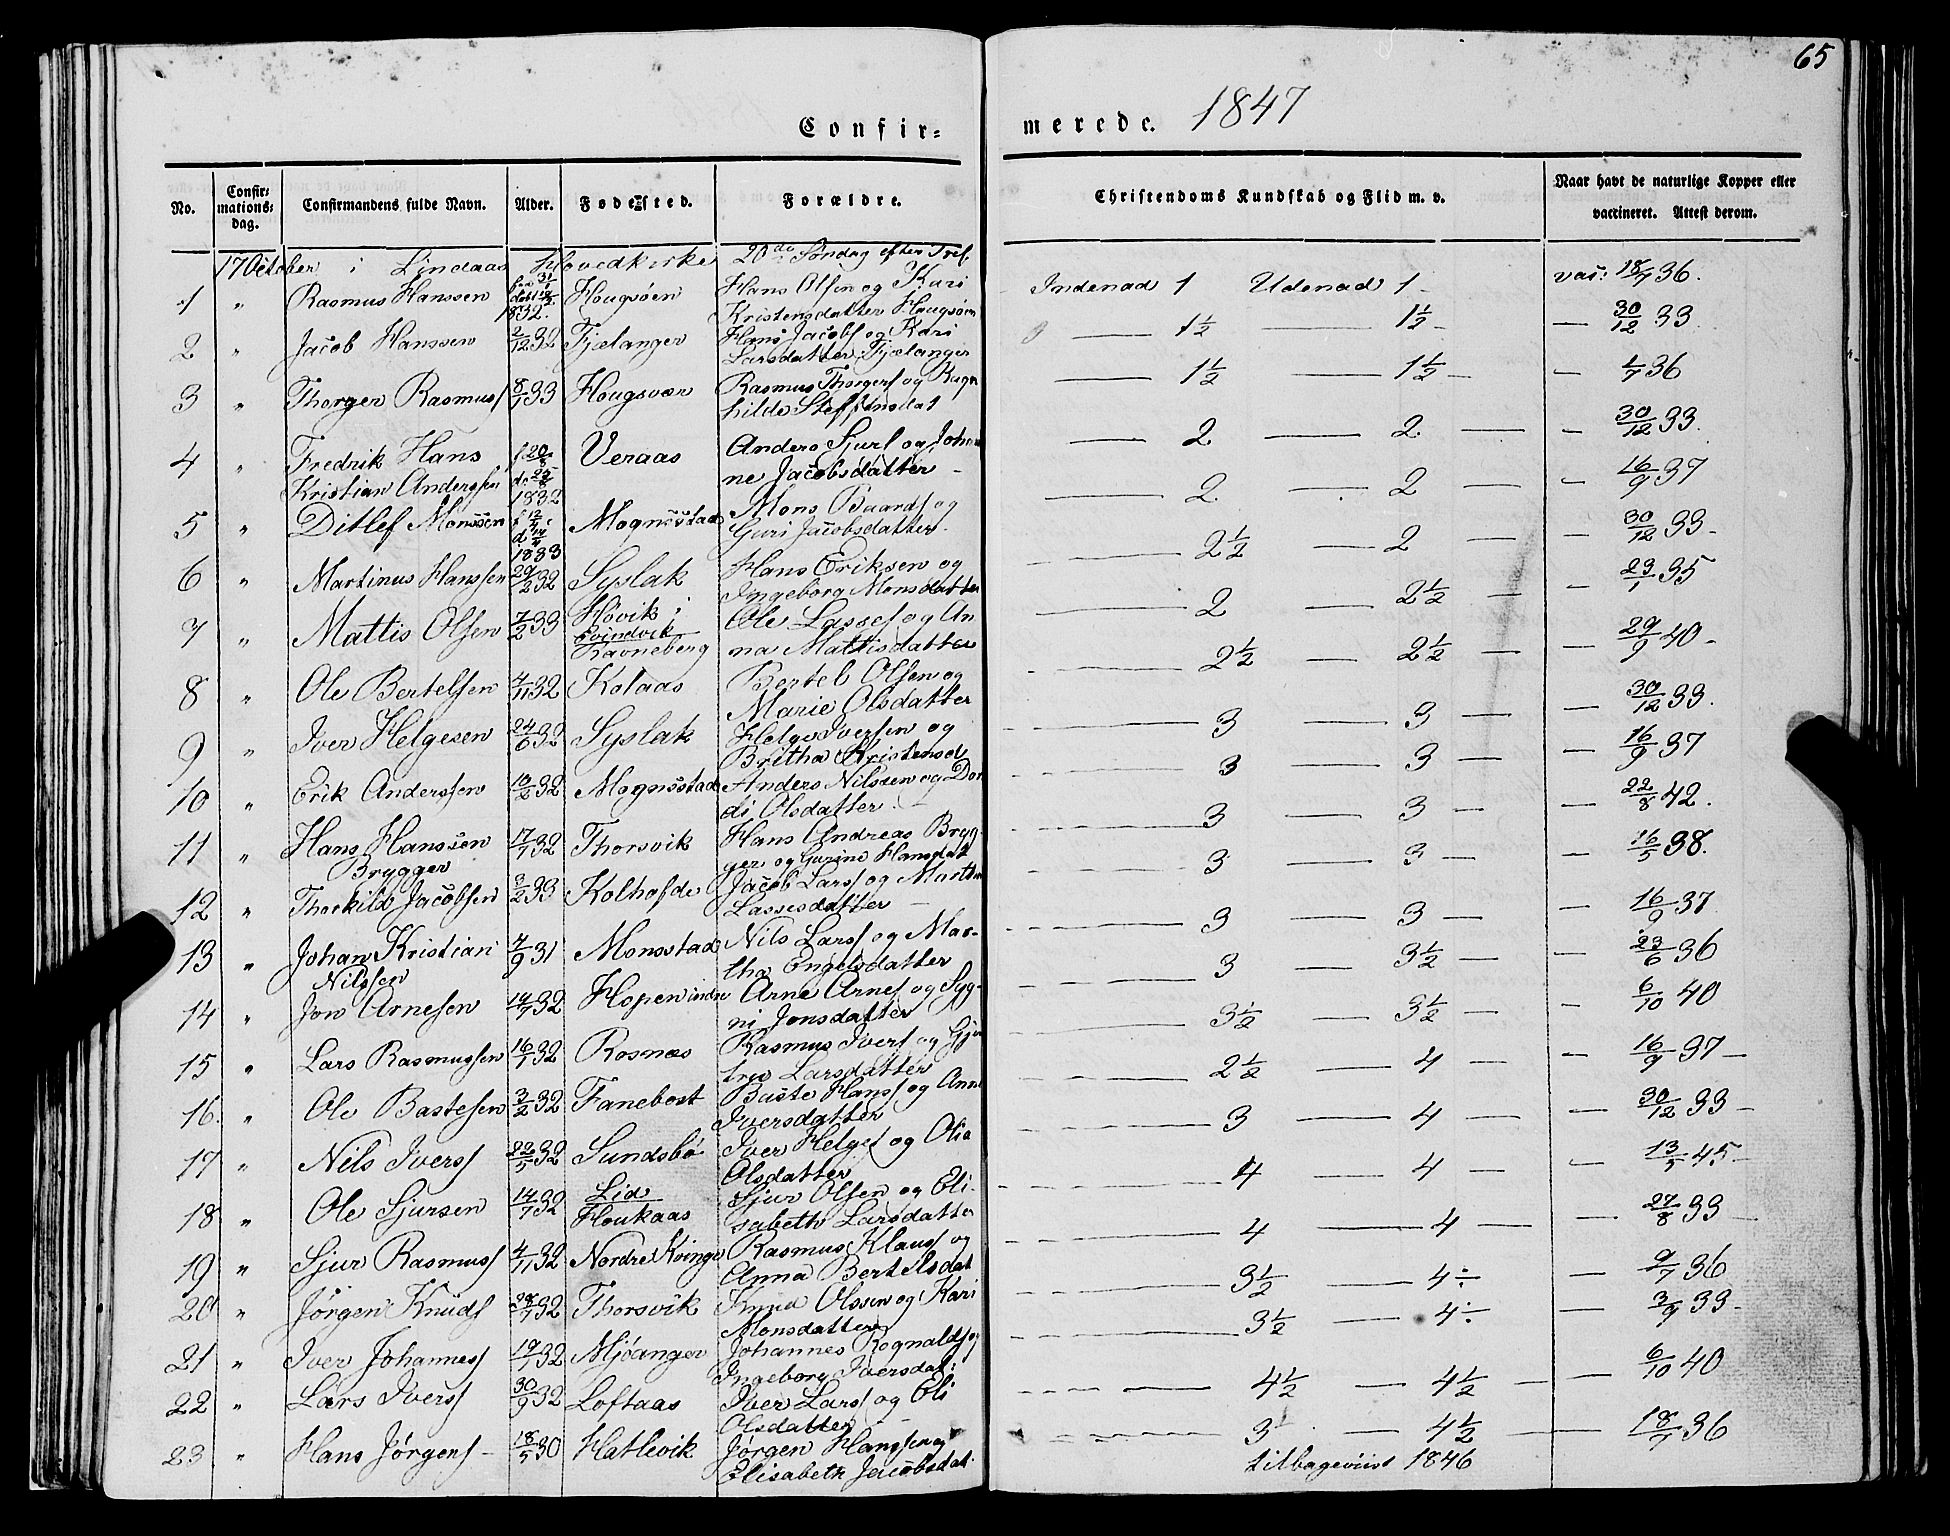 65
Confir-
merede. 1847
No.
Confir-
mations-
dag.
Confirmandens fulde Navn.
Alder.
Fødested.
Forældre.
Christendoms Kundskab og Flid m. v.
Naar havt de naturlige Kopper eller
vaccineret. Attest derom.
17 October i Lindaas Hovedkirke 20de Søndag efter Tref.
1 " Rasmus Hanssen 1832. Hougsøen Hans Olsen og Kari
Kristensdatter Hougsøen Indenad 1 Udenad 1 - vac: 18/7 36.
2 " Jacob Hanssen 2/12 32 Fjelanger Hans Jacobs og Kari
Larsdatter Fjelanger — 1½ — 1½ - — 30/12 33.
3 " Thorger Rasmuss 8/1 33 Hougsvær Rasmus Thorgers og Ragn
hilde Steffensdat — 1½ — 1½ — - 4/7 36
4 " Fredrik Hans f. 20/8 Veraas Anders Sjurs og Johan
Kristian Anderssen 1832 ne Jacobsdatter — 2 — 2 — - 30/12 33.
5 " Ditlef Monssen f 12/4 1833 Mognestad Mons Baards og
Guri Jacobsdatter. — 2 — 2 — - 16/9 37
6 " Martinus Hanssen 29/2 32 Syslak Hans Eriksen og
Ingeborg Monsdatter — 2½ — 2 — - 30/12 33 -
7 " Mattis Olsen 7/2 33 Høvik i
Evindvik
Ravneberg Ole Lasses og An
na Mattisdatter — 2 — 2½ — - 23/7 35
8 " Ole Bertelsen 4/11 32 Kolaas Bertel Olsen og
Marie Olsdatter — 2½ — 2½ — - 29/9 40 -
9 " Iver Helgesen 24/6 32 Syslak Helge Iversen og
Britha Kristensd — 3 — 3 — - 30/12 33.
10 " Erik Anderssen 10/2 32 Mognestad Anders Nilssen og Dor
di Olsdatter — 3 — 3 — - 16/9 37
11 " Hans Hanssen
Brygger 17/7 32 Thorsvik Hans Andreas Bryg-
ger og Gurine Hansdat — 3 — 3 — - 22/8 42.
12 " Thorkild Jacobsen 3/2 33 Kolhofde Jacob Larss og Martha
Lassesdatter — 3 — 3 — - 16/5 38.
13 " Johan Kristian
Nilssen 4/9 31 Monsstad Nils Larss og Mar-
tha Engelsdatter — 3 — 3 — - 16/9 37
14 " Jon Arnesen 19/9 32 Hopen indre Arne Arnes og Syg-
ni Jonsdatter — 3 — 3½ — - 23/6 36
15 " Lars Rasmussen 16/1 32 Rosnæs Rasmus Ivers og Gju
tru Larsdatter — 3½ — 3½ — - 6/10 40
16. " Ole Bastesen 3/2 32 Fanebost Baste Hanss og Anna
Iversdatter — 2½ — 4 — - 16/9 37 -
17 " Nils Iverss 22/5 32 Sundsbø Iver Helges og Olia
Olsdatter — 3 — 4 — - 30/12 33 -
18 " Ole Sjursen 14/7 32 Lid
Houkaas Sjur Olsen og Eli-
sabeth Larsdatter — 4 — 4 — - 13/5 45 -
19 " Sjur Rasmuss 4/11 32 Nordre Kvinge Rasmus Klauss og
Anna Bertelsdat — 4 — 4 — - 27/8 33 -
20 " Jørgen Knuds 28/7 32 Thorsvik Knud Olssen og Kari
Monsdatter — 3½ — 4÷ - 9/7 36
21 " Iver Johanness 19/1 32 Mjøanger Johannes Rognalds og
Ingeborg Iversdat: — 3½ — 4÷ - 3/9 33 -
22 " Lars Iverss 30/9 32 Loftaas Iver Larss og Eli
Olsdatter — 4½ — 4½ — - 6/10 40
23 " Hans Jørgens - 18/5 30 Hatlevik Jørgen Hanssen og
Elisabeth Jacobsdat. — 3 — 4½ — 18/7 36
tilbageviist 1846